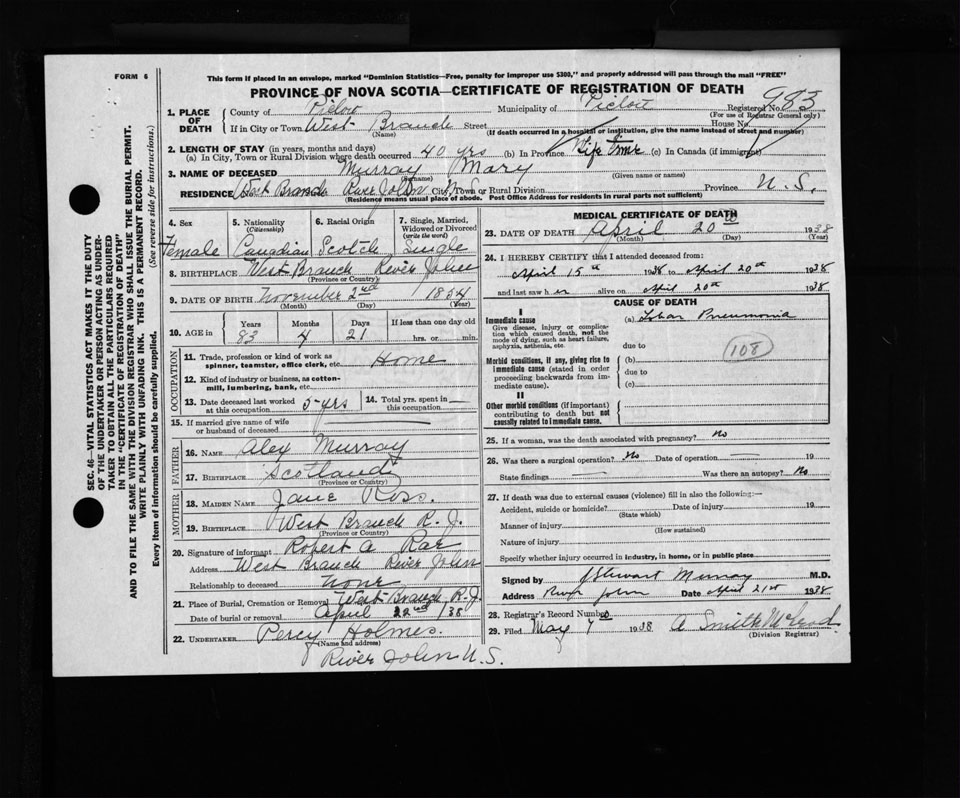 FORM 6
This form if placed in an envelope, marked "Dominion Statistics—Free, penalty for improper use $300," and properly addressed will pass through the mail "FREE"
PROVINCE OF NOVA SCOTIA—CERTIFICATE OF REGISTRATION OF DEATH
1. PLACE OF DEATH
County of Pictou Municipality of Pictou Registered No. 983
(For use of Registrar General only)
If in City or Town West Branch Street House No.
(Name) (If death occurred in a hospital or institution, give the name instead of street and number)
2. LENGTH OF STAY (in years, months and days)
(a) In City, Town or Rural Division where death occurred 40 yrs (b) In Province Life time (c) In Canada (if immigrant)
3. NAME OF DECEASED Murray Mary
(Given name or names)
RESIDENCE West Branch River John City, Town or Rural Division Province N.S.
(Residence means usual place of abode. Post Office Address for residents in rural parts not sufficient)
4. Sex 5. Nationality (Citizenship) 6. Racial Origin 7. Single, Married, Widowed or Divorced (write the word)
Female Canadian Scotch Single
8. BIRTHPLACE West Branch River John
(Province or Country)
9. DATE OF BIRTH November 2nd 1854
(Month) (Day) (Year)
10. AGE in Years Months Days If less than one day old
83 4 21 hrs. or min.
OCCUPATION
11. Trade, profession or kind of work as spinner, teamster, office clerk, etc. Home
12. Kind of industry or business, as cotton-mill, lumbering, bank, etc.
13. Date deceased last worked at this occupation 5-yrs 14. Total yrs. spent in this occupation
15. If married give name of wife or husband of deceased
FATHER
16. NAME Alex Murray
17. BIRTHPLACE Scotland
(Province or Country)
MOTHER
18. MAIDEN NAME Jane Ross.
19. BIRTHPLACE West Branch R. J.
(Province or Country)
20. Signature of informant Robert A Rae
Address West Branch River John
Relationship to deceased none
21. Place of Burial, Cremation or Removal West Branch R.J.
Date of burial or removal April 22nd /38
22. UNDERTAKER Percy Holmes.
(Name and address)
River John N.S.
MEDICAL CERTIFICATE OF DEATH
23. DATE OF DEATH April 20th 1938
(Month) (Day) (Year)
24. I HEREBY CERTIFY that I attended deceased from:
April 15th 1938 to April 20th 1938
and last saw her alive on April 20th 1938
CAUSE OF DEATH
I
Immediate cause (a) Lobar Pneumonia
Give disease, injury or complication which caused death, not the mode of dying, such as heart failure, asphyxia, asthenia, etc.
due to
108
Morbid conditions, if any, giving rise to immediate cause (stated in order proceeding backwards from immediate cause).
(b)
due to
(c)
II
Other morbid conditions (if important) contributing to death but not causally related to immediate cause.
25. If a woman, was the death associated with pregnancy? No
26. Was there a surgical operation? No Date of operation 19
State findings Was there an autopsy? No
27. If death was due to external causes (violence) fill in also the following:—
Accident, suicide or homicide? Date of injury 19
(State which)
Manner of injury
(How sustained)
Nature of injury
Specify whether injury occurred in industry, in home, or in public place
Signed by J Stewart Murray M.D.
Address River John Date April 21st 1938
28. Registrar's Record Number
29. Filed May 7 1938 A Smith McLeod
(Division Registrar)
SEC. 46—VITAL STATISTICS ACT MAKES IT THE DUTY
OF THE UNDERTAKER OR PERSON ACTING AS UNDER-
TAKER TO OBTAIN ALL THE PARTICULARS REQUIRED
IN THE "CERTIFICATE OF REGISTRATION OF DEATH"
AND TO FILE THE SAME WITH THE DIVISION REGISTRAR WHO SHALL ISSUE THE BURIAL PERMIT.
WRITE PLAINLY WITH UNFADING INK. THIS IS A PERMANENT RECORD.
Every item of information should be carefully supplied. (See reverse side for instructions.)